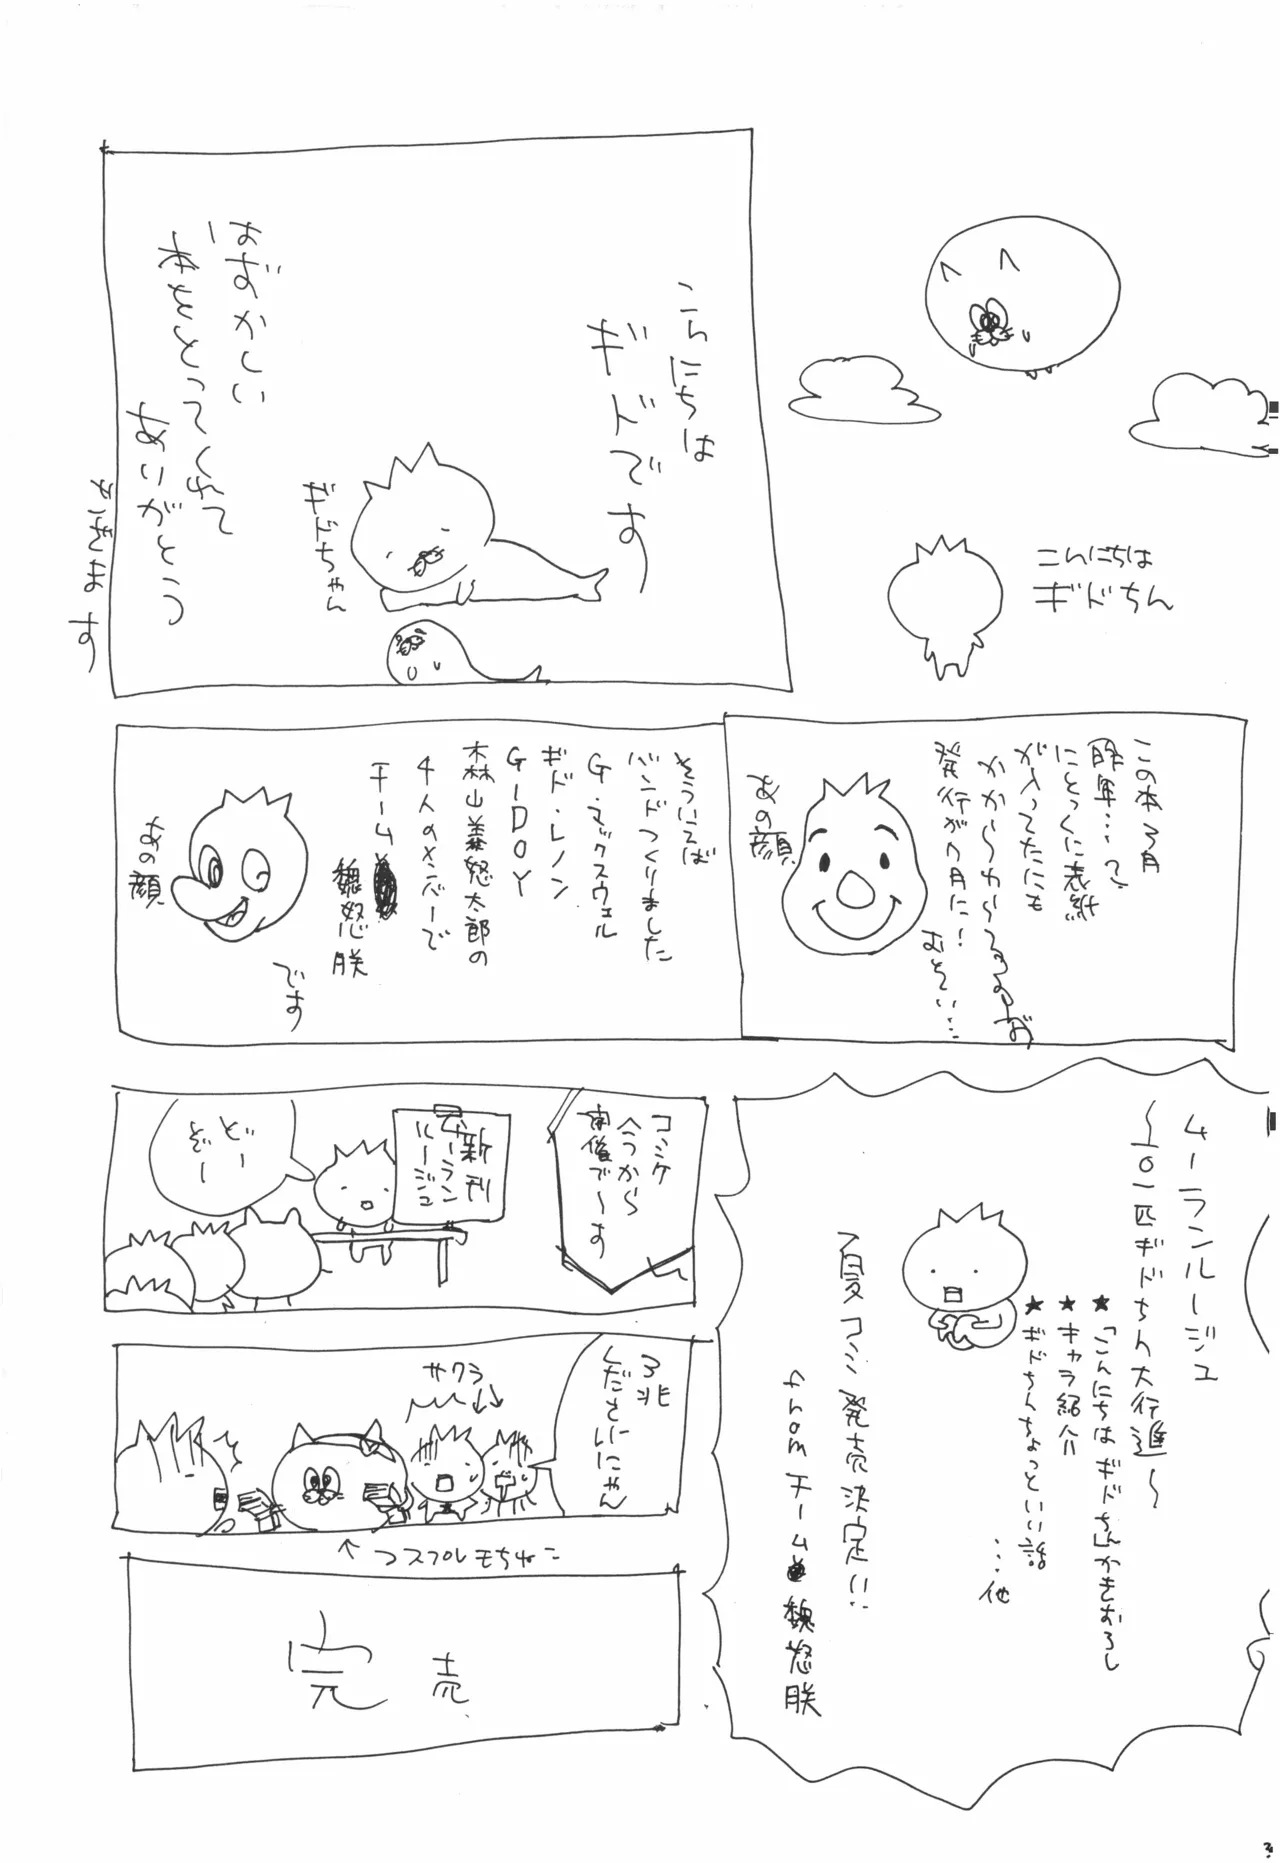 こんにちは
ギドちん
こんにちは
ギドです
ギドちゃん
はずかしい
本をとってくれて
ありがとう
この本3月
にとっくに表紙
が入ってたにも
かからわからるのしず
発行が八月に!
むごい…
あの顔
そういえば
バンドつくりました
G・マックスウェル
ギド・レノン
G-DOY
森山義怒太郎の
4人のメンバーで
チーム
魏怒朕
です
あの顔
ムーランルージュ
〜101匹ギドちん大行進〜
★「こんにちはギドちん」かきおろし
★キャラ紹介
★ギドちんちょっといい話
…他
夏コミ発売決定!!
from チーム魏怒朕
コミケ
今から
開催で〜す
新刊
ムーラン
ルージュ
どー
ぞー
3兆
くださいにゃん
サクラ
コスプレもちねこ
完売